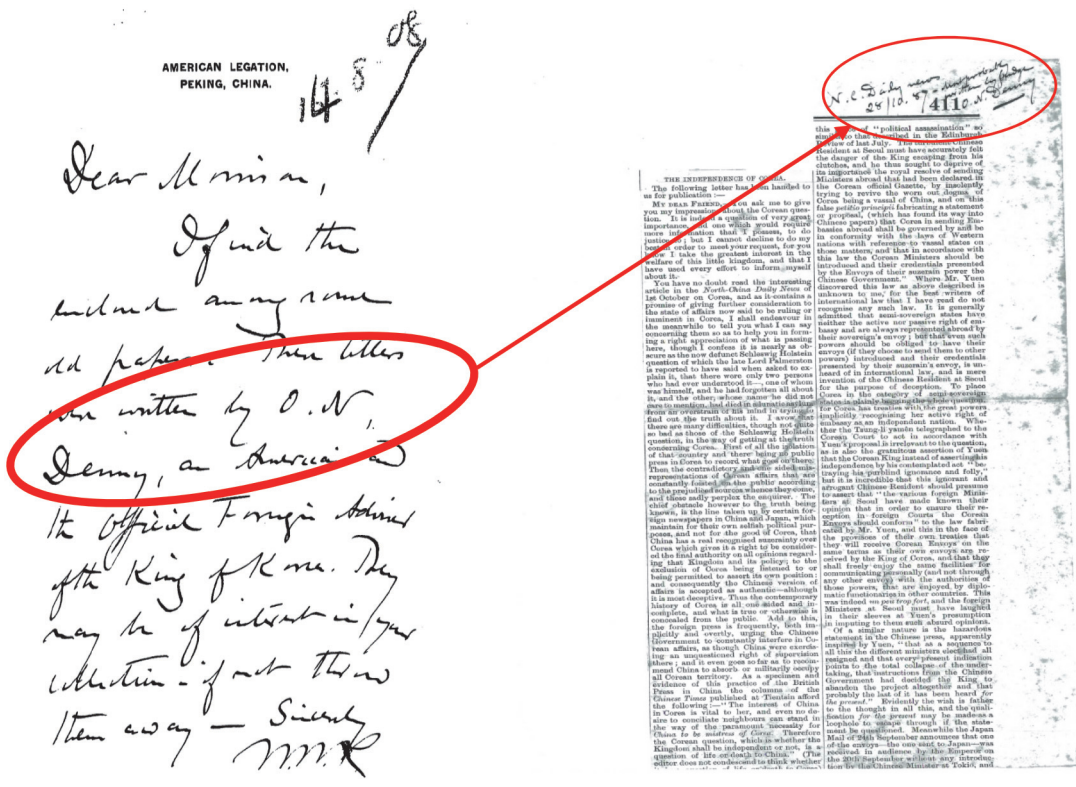 AMERICAN LEGATION,
PEKING, CHINA.
14 8 08
Dear Morrison,
I find the
enclosed among some
old papers. These letters
were written by O. N.
Denny, an American and
the Official Foreign Adviser
of the King of Korea. They
may be of interest in your
collection - if not throw
them away — Sincerely
W.W.R
THE INDEPENDENCE OF COREA.
The following letter has been handed to
us for publication :—
MY DEAR FRIEND,—You ask me to give
you my impression about the Corean ques-
tion. It is indeed a question of very great
importance, and one which would require
more information than I possess, to do
justice to; but I cannot decline to do my
best in order to meet your request, for you
know I take the greatest interest in the
welfare of this little kingdom, and that I
have used every effort to inform myself
about it.
You have no doubt read the interesting
article in the North-China Daily News of
1st October on Corea, and as it contains a
promise of giving further consideration to
the state of affairs now said to be ruling or
imminent in Corea, I shall endeavour in
the meanwhile to tell you what I can say
concerning them so as to help you in form-
ing a right appreciation of what is passing
here, though I confess it is nearly as ob-
scure as the now defunct Schleswig Holstein
question of which the late Lord Palmerston
is reported to have said when asked to ex-
plain it, that there were only two persons
who had ever understood it—, one of whom
was himself, and he had forgotten all about
it, and the other, whose name he did not
care to mention, had died in a lunatic asylum
from an overstrain of his mind in trying to
find out the truth about it. I avow that
there are many difficulties, though not quite
so bad as those of the Schleswig Holstein
question, in the way of getting at the truth
concerning Corea. First of all the isolation
of that country and there being no public
press in Corea to record what goes on there.
Then the contradictory and one sided mis-
representations of Corean affairs that are
constantly foisted on the public according
to the prejudiced sources whence they come,
and these sadly perplex the enquirer. The
chief obstacle however to the truth being
known, is the line taken up by certain for-
eign newspapers in China and Japan, which
maintain for their own selfish political pur-
poses, and not for the good of Corea, that
China has a real recognised suzerainty over
Corea which gives it a right to be consider-
ed the final authority on all opinions regard-
ing that Kingdom and its policy; to the
exclusion of Corea being listened to or
being permitted to assert its own position:
and consequently the Chinese version of
affairs is accepted as authentic—although
it is most deceptive. Thus the contemporary
history of Corea is all one sided and in-
complete, and what is true or otherwise is
concealed from the public. Add to this,
the foreign press is frequently, both im-
plicitly and overtly, urging the Chinese
Government to constantly interfere in Co-
rean affairs, as though China were exercis-
ing an unquestioned right of supervision
there; and it even goes so far as to recom-
mend China to absorb or militarily occupy
all Corean territory. As a specimen and
evidence of this practice of the British
Press in China the columns of the
Chinese Times published at Tientsin afford
the following :—"The interest of China
in Corea is vital to her, and even no de-
sire to conciliate neighbours can stand in
the way of the paramount necessity for
China to be mistress of Corea. Therefore
the Corean question, which is whether the
Kingdom shall be independent or not, is a
question of life or death to China." (The
editor does not condescend to think whether
N. C. Daily news
28/10. 87 - most probably
written by Judge
411 O. N. Denny
this of "political assassination" so
similar to that described in the Edinburgh
Review of last July. The turbulent Chinese
Resident at Seoul must have accurately felt
the danger of the King escaping from his
clutches, and he thus sought to deprive of
its importance the royal resolve of sending
Ministers abroad that had been declared in
the Corean official Gazette, by insolently
trying to revive the worn out dogma of
Corea being a vassal of China, and on this
false petitio principii fabricating a statement
or proposal, (which has found its way into
Chinese papers) that Corea in sending Em-
bassies abroad shall be governed by and be
in conformity with the laws of Western
nations with reference to vassal states on
those matters, and that in accordance with
this law the Corean Ministers should be
introduced and their credentials presented
by the Envoys of their suzerain power the
Chinese Government." Where Mr. Yuen
discovered this law as above described is
unknown to me, for the best writers of
international law that I have read do not
recognise any such law. It is generally
admitted that semi-sovereign states have
neither the active nor passive right of em-
bassy and are always represented abroad by
their sovereign's envoy; but that even such
powers should be obliged to have their
envoys (if they choose to send them to other
powers) introduced and their credentials
presented by their suzerain's envoy, is un-
heard of in international law, and is mere
invention of the Chinese Resident at Seoul
for the purpose of deception. To place
Corea in the category of semi-sovereign
states is plainly begging the whole question,
for Corea has treaties with the great powers
implicitly recognising her active right of
embassy as an independent nation. Whe-
ther the Tsung-li yamên telegraphed to the
Corean Court to act in accordance with
Yuen's proposal is irrelevant to the question,
as is also the gratuitous assertion of Yuen
that the Corean King instead of asserting his
independence by his contemplated act "be-
traying his purblind ignorance and folly,"
but it is incredible that this ignorant and
arrogant Chinese Resident should presume
to assert that "the various foreign Minis-
ters at Seoul have made known their
opinion that in order to ensure their re-
ception in foreign Courts the Corean
Envoys should conform" to the law fabri-
cated by Mr. Yuen, and this in the face of
the provisoes of their own treaties that
they will receive Corean Envoys on the
same terms as their own envoys are re-
ceived by the King of Corea, and that they
shall freely enjoy the same facilities for
communicating personally (and not through
any other envoy) with the authorities of
those powers, that are enjoyed by diplo-
matic functionaries in other countries. This
was indeed un peu trop fort, and the foreign
Ministers at Seoul must have laughed
in their sleeves at Yuen's presumption
in imputing to them such absurd opinions.
Of a similar nature is the hazardous
statement in the Chinese press, apparently
inspired by Yuen, "that as a sequence to
all this the different ministers elect had all
resigned and that every present indication
points to the total collapse of the under-
taking, that instructions from the Chinese
Government had decided the King to
abandon the project altogether and that
probably the last of it has been heard for
the present." Evidently the wish is father
to the thought in all this, and the quali-
fication for the present may be made as a
loophole to escape through if the state-
ment be questioned. Meanwhile the Japan
Mail of 24th September announces that one
of the envoys—the one sent to Japan—was
received in audience by the Emperor on
the 20th September without any introduc-
tion by the Chinese Minister at Tokio, and